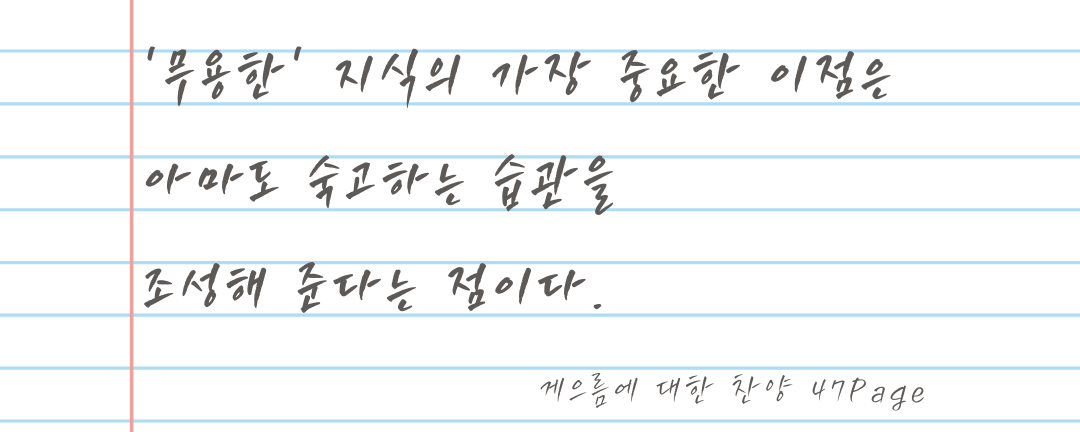 '무용한' 지식의 가장 중요한 이점은
아마도 숙고하는 습관을
조성해 준다는 점이다.
게으름에 대한 찬양 47Page